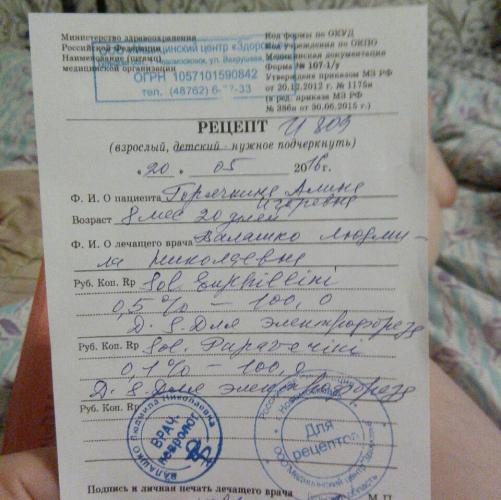 Министерство здравоохранения
Российской Федерации
Наименование (штамп)
медицинской организации
ООО «Медицинский центр «Здоровье»
ОГРН 1057101590842
тел. (48762) 6- -33
Код формы по ОКУД
Код учреждения по ОКПО
Медицинская документация
Форма № 107-1/у
Утверждена приказом МЗ РФ
от 20.12.2012 г. № 1175н
(в ред. приказа МЗ РФ
№ 386н от 30.06.2015 г.)
РЕЦЕПТ И 809
(взрослый, детский - нужное подчеркнуть)
«20» 05 2016 г.
Ф. И. О пациента Горячкина Алина
Игоревна
Возраст 8 мес 20 дней
Ф. И. О лечащего врача Валашко Людми-
ла Николаевна
Руб. Коп. Rp Sol.
0,5% - 100,0
D. S. Для электрофореза
Руб. Коп. Rp Sol.
0,1% - 100,0
D. S. Для электрофореза
Руб. Коп. Rp
ВАЛАШКО Людмила Николаевна
ВРАЧ-
невролог
Для
рецептов
Подпись и личная печать лечащего врача
М.П.